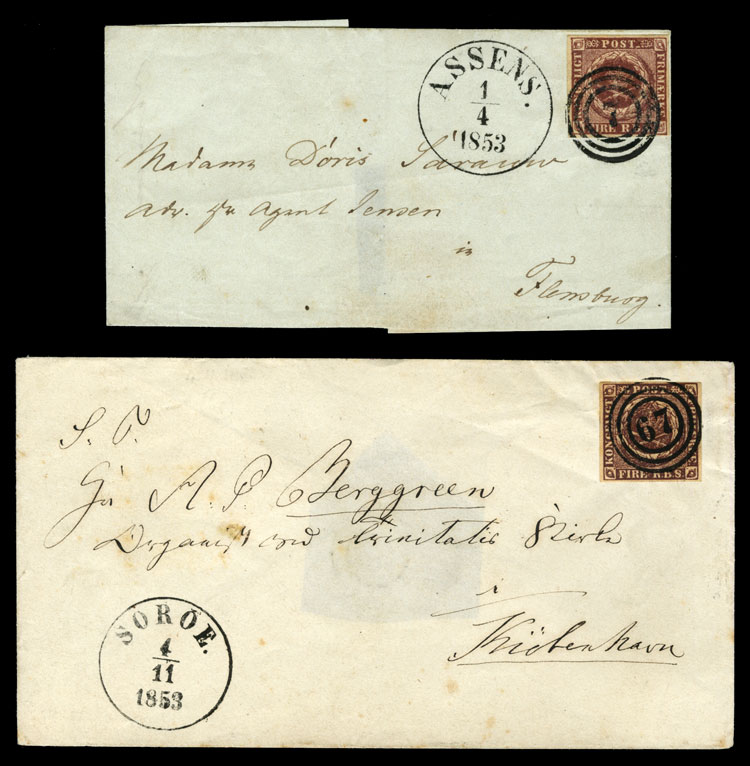 ASSENS.
1
4
1853
KONGELIGT POST FRIMÆRKE
FIRE R.B.S.
7
Madame Döris Sarauw
adr. Hr Agent Jensen
in
Flensburg.
KONGELIGT POST FRIMÆRKE
FIRE R.B.S.
67
S. T.
Hr A. P. Berggreen
Organist ved Trinitatis Kirke
i
Kiöbenhavn
SOROE.
4
11
1853